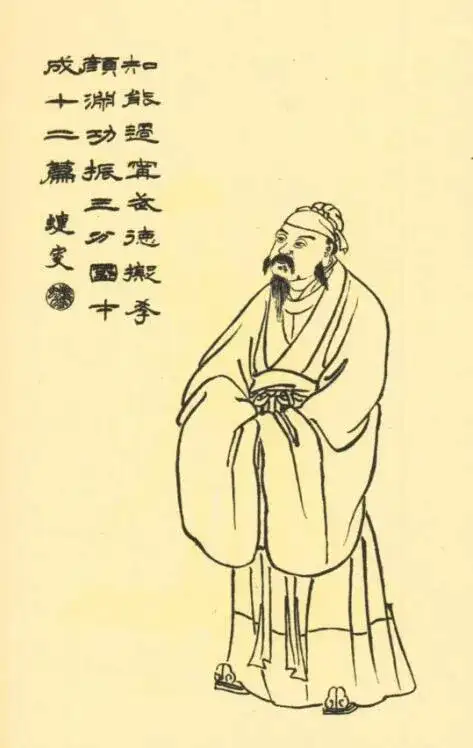 知能過甯武德擬季
顏淵功振三分國中
成十二篇
蜨叟